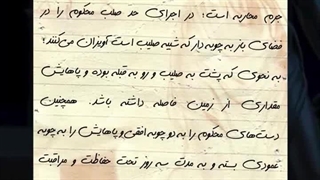 جرم محاربه است: در اجرای حد صلب محکوم را در
فضای باز به چوبه دار که شبیه صلیب است آویزان می‌کنند؛
به نحوی که پشت به صلیب و رو به قبله بوده و پاهایش
مقداری از زمین فاصله داشته باشد. همچنین
دست‌های محکوم را به دو چوبه افقی و پاهایش را به چوبه
عمودی بسته و به مدت سه روز تحت حفاظت و مراقبت